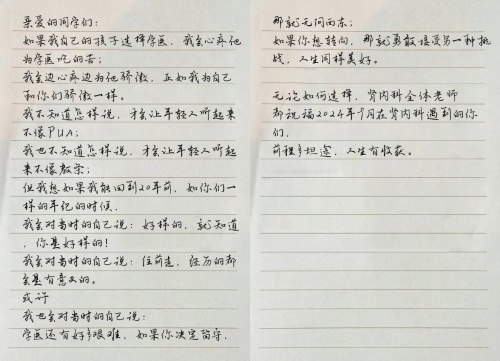 亲爱的同学们:
如果我自己的孩子选择学医,我会心疼他
为学医吃的苦;
我会边心疼边为他骄傲,正如我为自己
和你们骄傲一样。
我不知道怎样说,才会让年轻人听起来
不像PUA;
我也不知道怎样说,才会让年轻人听起
来不像教条;
但我想如果我能回到20年前,如你们一
样的年纪的时候,
我会对当时的自己说:好样的,就知道
,你是好样的!
我会对当时的自己说:往前走,经历的都
会是有意义的。
或许
我也会对当时的自己说:
学医还有好多艰难,如果你决定留守,
那就无问西东;
如果你想转向,那就勇敢接受另一种挑
战,人生同样美好。
无论如何选择,肾内科全体老师
都祝福2024年个月在肾内科遇到的你
们,
前程多坦途,人生有收获。